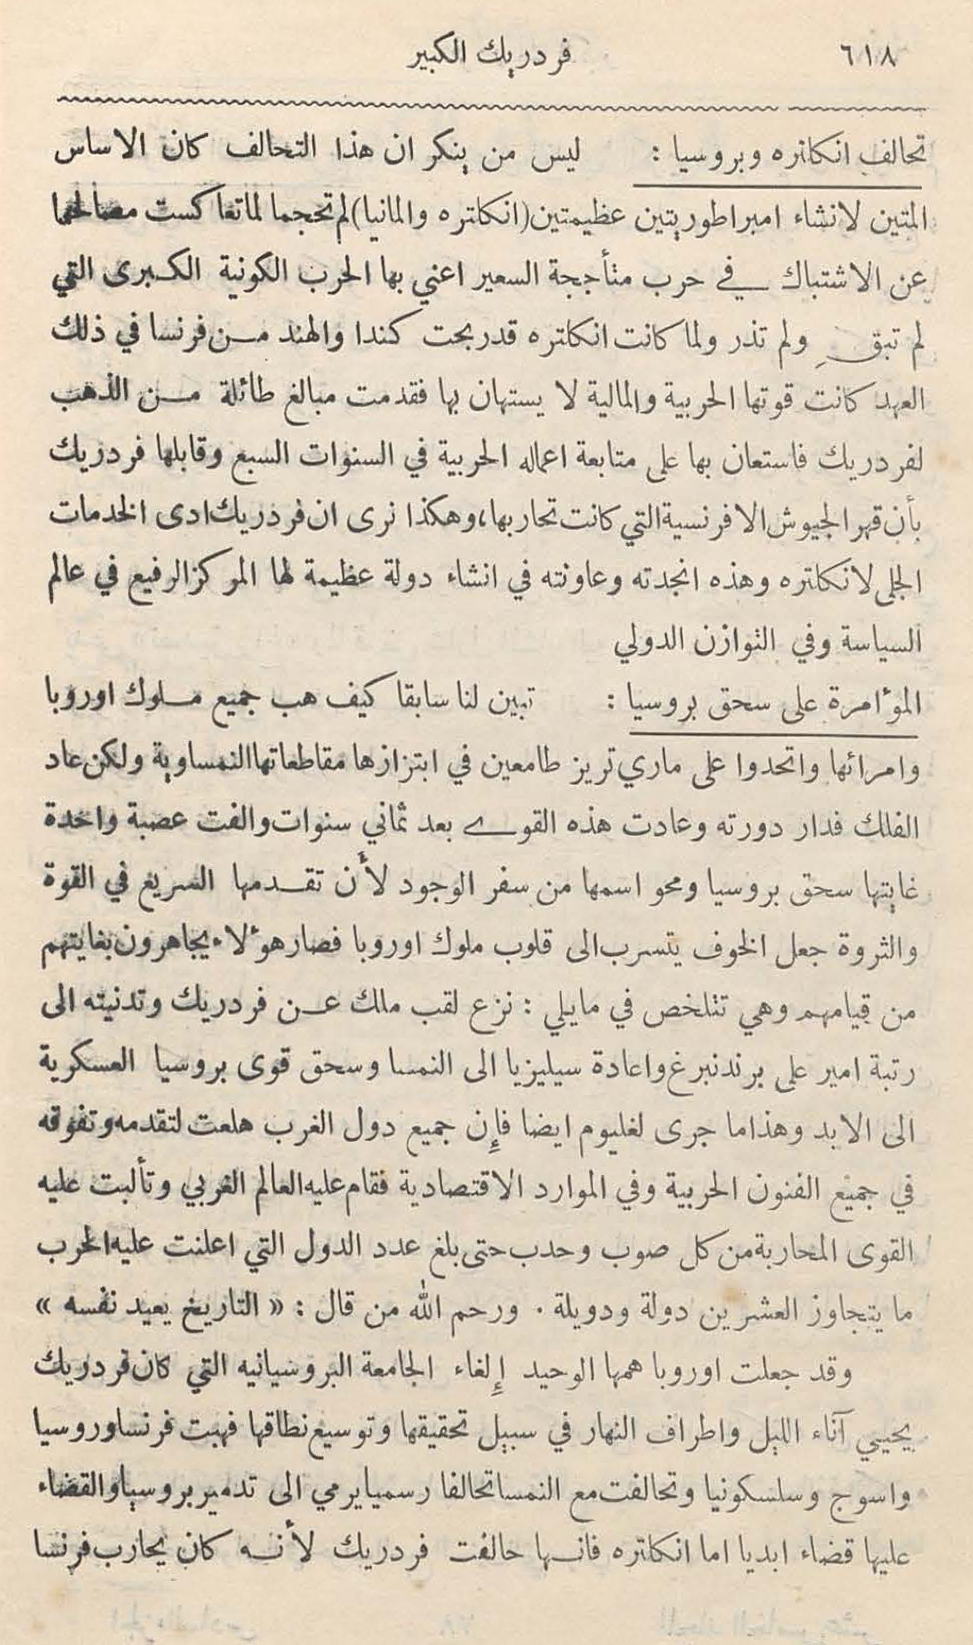 ٦١٨
فردريك الكبير
تحالف انكلتره وبروسيا : ليس من ينكر ان هذا التحالف كان الاساس
المتين لانشاء امبراطوريتين عظيمتين (انكلتره والمانيا) لم تحجما لما تعاكست مصالحهما
عن الاشتباك في حرب متأججة السعير اعني بها الحرب الكونية الكبرى التي
لم تبقِ ولم تذر ولما كانت انكلتره قد ربحت كندا والهند من فرنسا في ذلك
العهد كانت قوتها الحربية والمالية لا يستهان بها فقدمت مبالغ طائلة من الذهب
لفردريك فاستعان بها على متابعة اعماله الحربية في السنوات السبع وقابلها فردريك
بأن قهر الجيوش الافرنسية التي كانت تحاربها، وهكذا نرى ان فردريك ادى الخدمات
الجلى لانكلتره وهذه انجدته وعاونته في انشاء دولة عظيمة لها المركز الرفيع في عالم
السياسة وفي التوازن الدولي
المؤامرة على سحق بروسيا : تبين لنا سابقا كيف هب جميع ملوك اوروبا
وامرائها واتحدوا على ماري تريز طامعين في ابتزازها مقاطعاتها النمساوية ولكن عاد
الفلك فدار دورته وعادت هذه القوى بعد ثماني سنوات والفت عصبة واحدة
غايتها سحق بروسيا ومحو اسمها من سفر الوجود لأن تقدمها السريع في القوة
والثروة جعل الخوف يتسرب الى قلوب ملوك اوروبا فصار هؤلاء يجاهرون بغايتهم
من قيامهم وهي تتلخص في مايلي : نزع لقب ملك عن فردريك وتدنيته الى
رتبة امير على برندنبرغ واعادة سيليزيا الى النمسا وسحق قوى بروسيا العسكرية
الى الابد وهذا ما جرى لغليوم ايضا فإن جميع دول الغرب هلعت لتقدمه وتفوقه
في جميع الفنون الحربية وفي الموارد الاقتصادية فقام عليه العالم الغربي وتألبت عليه
القوى المحاربة من كل صوب وحدب حتى بلغ عدد الدول التي اعلنت عليه الحرب
ما يتجاوز العشرين دولة ودويلة . ورحم الله من قال : « التاريخ يعيد نفسه »
وقد جعلت اوروبا همها الوحيد إلغاء الجامعة البروسيانيه التي كان فردريك
يحيي آناء الليل واطراف النهار في سبيل تحقيقها وتوسيع نطاقها فهبت فرنسا وروسيا
واسوج وسلسكونيا وتحالفت مع النمسا تحالفا رسميا يرمي الى تدمير بروسيا والقضاء
عليها قضاء ابديا اما انكلتره فانها حالفت فردريك لأنه كان يحارب فرنسا